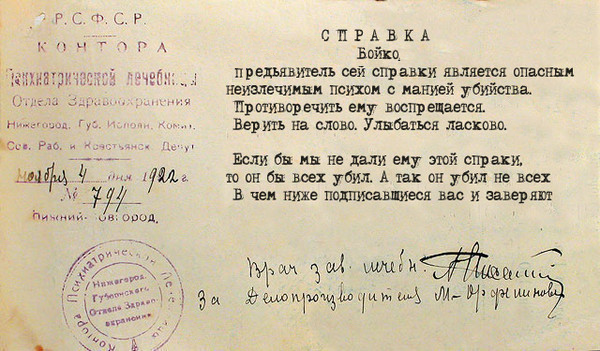 Р.С.Ф.С.Р.
КОНТОРА
Психиатрической лечебницы
Отдела Здравоохранения
Нижегород. Губ. Исполн. Комит.
Сов. Раб. и Крестьянск. Депут.
ноября 4 дня 1922 г.
№ 794
Нижний-Новгород.
СПРАВКА
Бойко,
предьявитель сей справки является опасным
неизлечимым психом с манией убийства.
Противоречить ему воспрещается.
Верить на слово. Улыбаться ласково.
Если бы мы не дали ему этой спраки,
то он бы всех убил. А так он убил не всех
В чем ниже подписавшиеся вас и заверяют
Контора Психиатрической Лечебницы
Нижегород.
Губернского
Отдела Здраво-
охранения
Врач зав. лечебн.
За Делопроизводителя